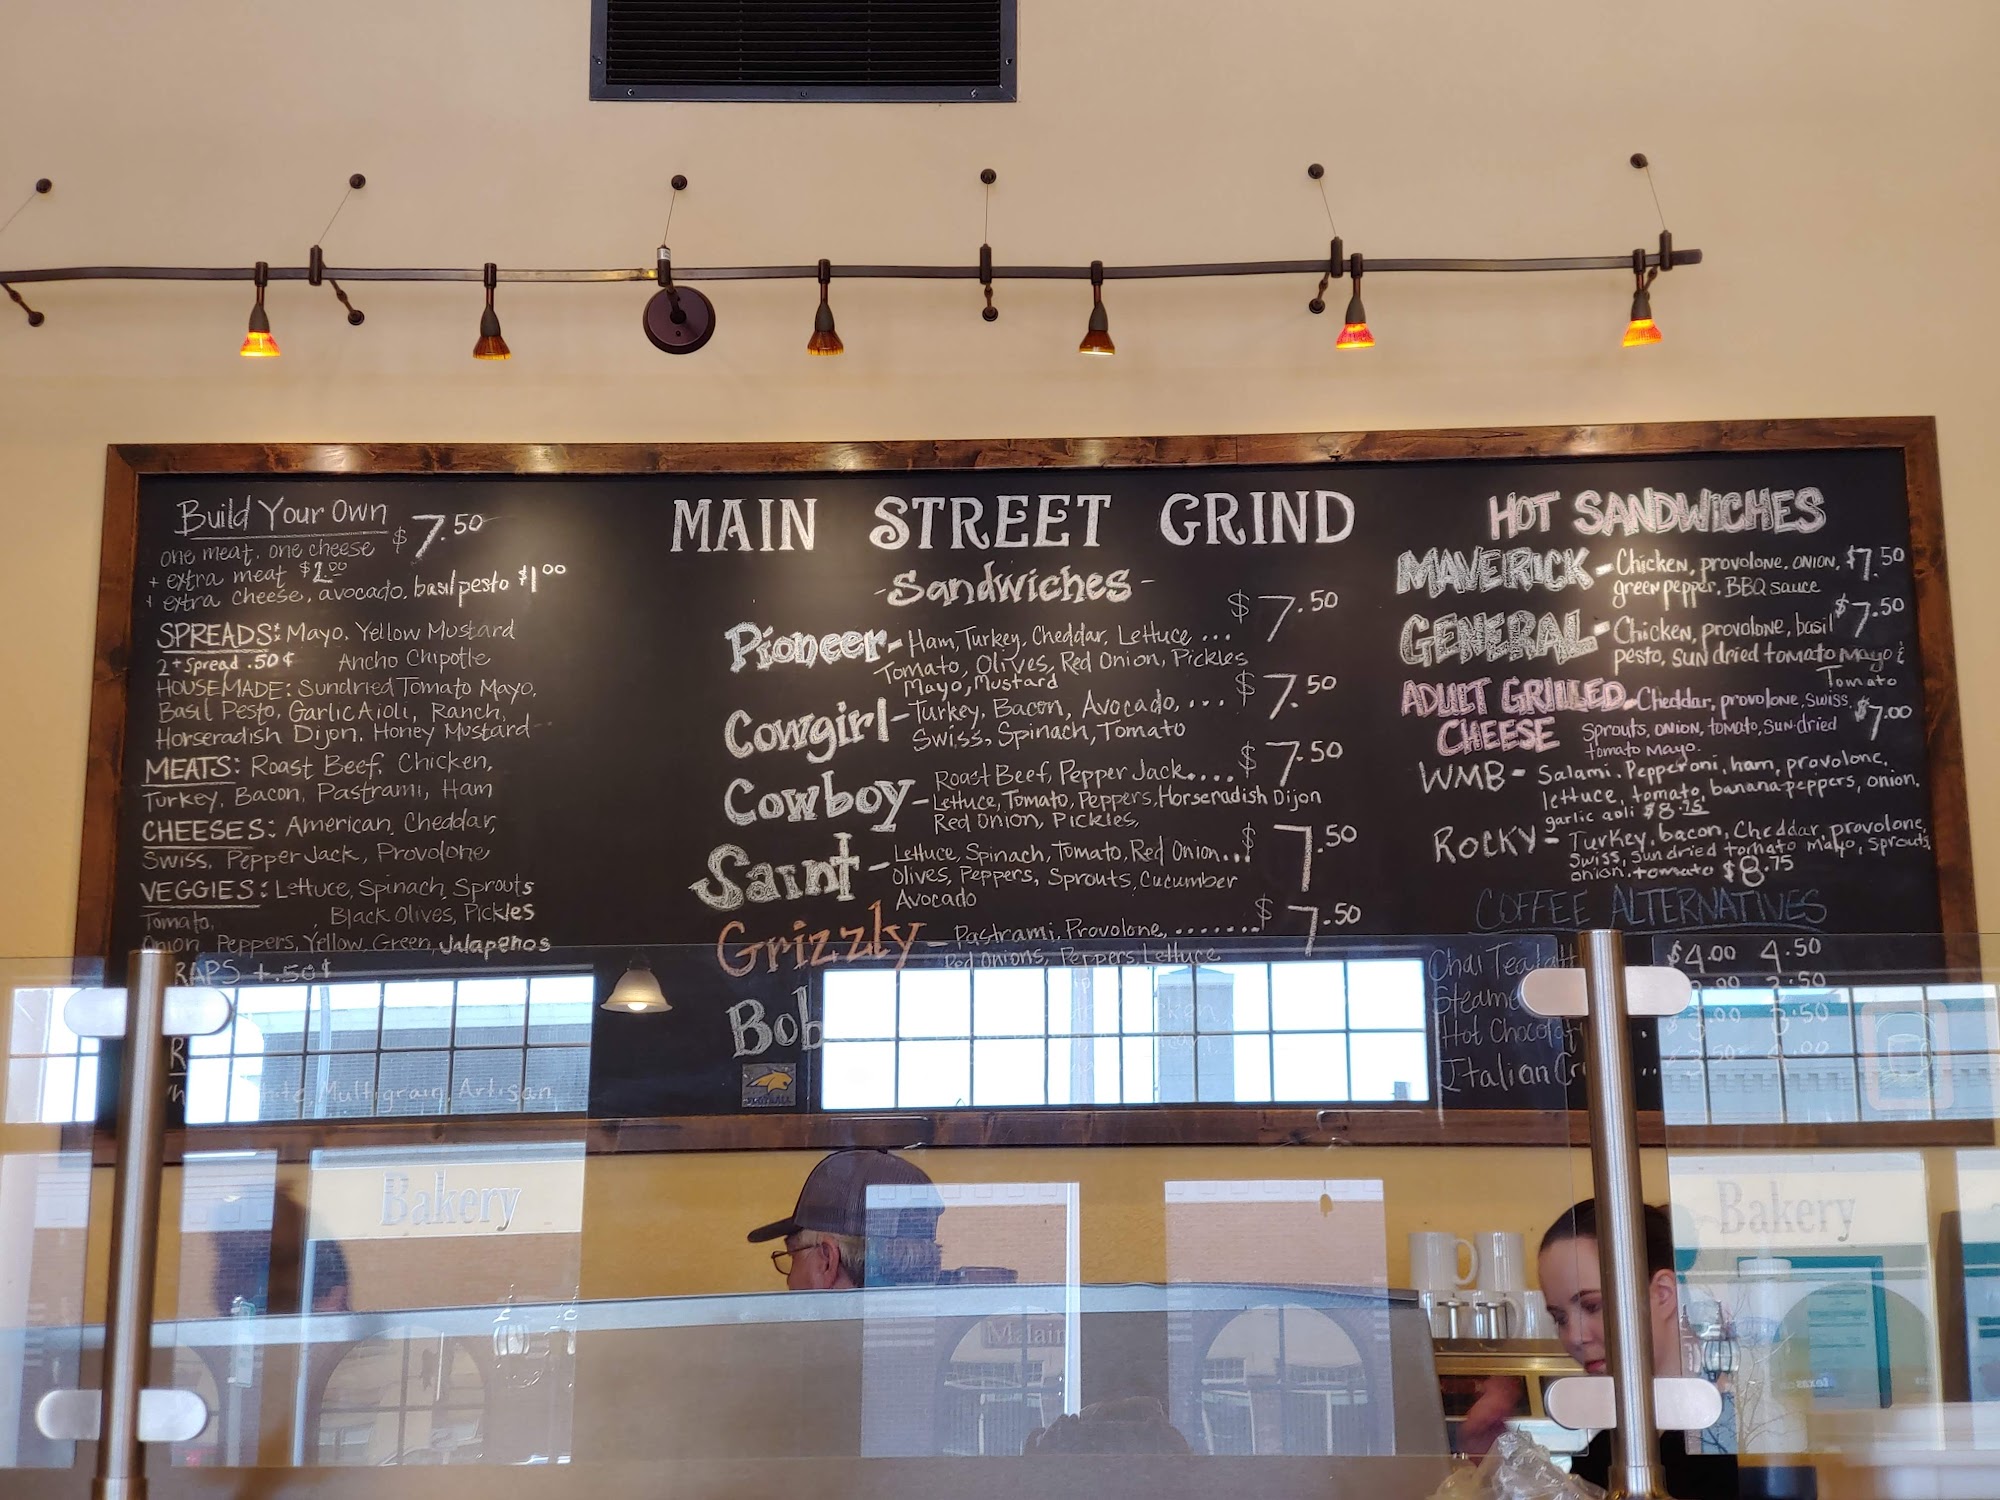 Build Your Own
$7.50
one meat, one cheese
+ extra meat $2.00
+ extra cheese, avocado, basil pesto $1.00
SPREADS: Mayo, Yellow Mustard
2+ spread .50¢ Ancho Chipotle
HOUSEMADE: Sundried Tomato Mayo,
Basil Pesto, Garlic Aioli, Ranch,
Horseradish Dijon, Honey Mustard
MEATS: Roast Beef, Chicken,
Turkey, Bacon, Pastrami, Ham
CHEESES: American, Cheddar,
Swiss, Pepper Jack, Provolone
VEGGIES: Lettuce, Spinach, Sprouts
Tomato, Black Olives, Pickles
Onion, Peppers, Yellow, Green, Jalapeños
RAPS + .50¢
Multigrain, Artisan
MAIN STREET GRIND
-Sandwiches-
Pioneer- Ham, Turkey, Cheddar, Lettuce ... $7.50
Tomato, Olives, Red Onion, Pickles
Mayo, Mustard
Cowgirl- Turkey, Bacon, Avocado, ... $7.50
Swiss, Spinach, Tomato
Cowboy- Roast Beef, Pepper Jack.... $7.50
Lettuce, Tomato, Peppers, Horseradish Dijon
Red Onion, Pickles,
Saint- Lettuce, Spinach, Tomato, Red Onion... $7.50
Olives, Peppers, Sprouts, Cucumber
Avocado
Grizzly- Pastrami, Provolone, ........ $7.50
Red Onions, Peppers, Lettuce
Bob
HOT SANDWICHES
MAVERICK- Chicken, provolone, onion, $7.50
green pepper, BBQ sauce
GENERAL- Chicken, provolone, basil $7.50
pesto, sun dried tomato Mayo &
Tomato
ADULT GRILLED CHEESE- Cheddar, provolone, swiss, $7.00
sprouts, onion, tomato, sun-dried
tomato Mayo.
WMB- Salami, Pepperoni, ham, provolone,
lettuce, tomato, banana peppers, onion,
garlic aoli $8.75
ROCKY- Turkey, bacon, Cheddar, provolone,
Swiss, Sun dried tomato mayo, sprouts,
onion, tomato $8.75
COFFEE ALTERNATIVES
Chai Tea Latt $4.00 4.50
Steame 3.50
Hot Chocolat 3.00 3.50
Italian Cr .. 3.50 4.00
Bakery
Bakery